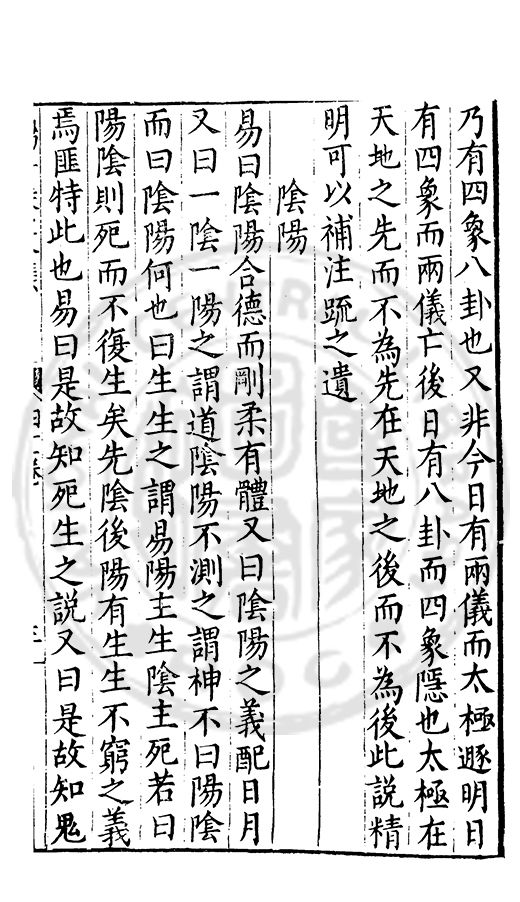 乃有四象八卦也又非今日有兩儀而太極遯明日
有四象而兩儀亡後日有八卦而四象隱也太極在
天地之先而不為先在天地之後而不為後此說精
明可以補注疏之遺
陰陽
易曰陰陽合德而剛柔有體又曰陰陽之義配日月
又曰一陰一陽之謂道陰陽不測之謂神不曰陽陰
而曰陰陽何也曰生生之謂易陽主生陰主死若曰
陽陰則死而不復生矣先陰後陽有生生不窮之義
焉匪特此也易曰是故知死生之說又曰是故知鬼